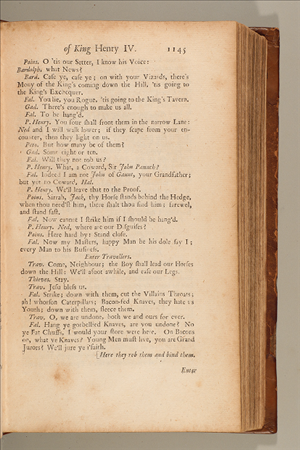 of King Henry IV. 1145
Poins. O 'tis our Setter, I know his Voice:
Bardolph, what News?
Bard. Case ye, case ye; on with your Vizards, there's
Mony of the King's coming down the Hill, 'tis going to
the King's Exchequer.
Fal. You lie, you Rogue, 'tis going to the King's Tavern.
Gad. There's enough to make us all.
Fal. To be hang'd.
P. Henry. You four shall front them in the narrow Lane:
Ned and I will walk lower; if they scape from your en-
counter, then they light on us.
Peto. But how many be of them?
Gad. Some eight or ten.
Fal. Will they not rob us?
P. Henry. What, a Coward, Sir John Paunch?
Fal. Indeed I am not John of Gaunt, your Grandfather;
but yet no Coward, Hal.
P. Henry. We'll leave that to the Proof.
Poins. Sirrah, Jack, thy Horse stands behind the Hedge,
when thou need'st him, there shalt thou find him; farewel,
and stand fast.
Fal. Now cannot I strike him if I should be hang'd.
P. Henry. Ned, where are our Disguises?
Poins. Here hard by: Stand close.
Fal. Now my Masters, happy Man be his dole say I;
every Man to his Business.
Enter Travellers.
Trav. Come, Neighbour; the Boy shall lead our Horses
down the Hill: We'll afoot awhile, and ease our Legs.
Thieves. Stay.
Trav. Jesu bless us.
Fal. Strike; down with them, cut the Villains Throats;
ah! whorson Caterpillars; Bacon-fed Knaves, they hate us
Youth; down with them, fleece them.
Trav. O, we are undone, both we and ours for ever.
Fal. Hang ye gorbellied Knaves, are you undone? No
ye Fat Chuffs, I would your store were here. On Bacons
on, what ye Knaves? Young Men must live, you are Grand
Jurors? We'll jure ye i'faith.
[Here they rob them and bind them.
Enter